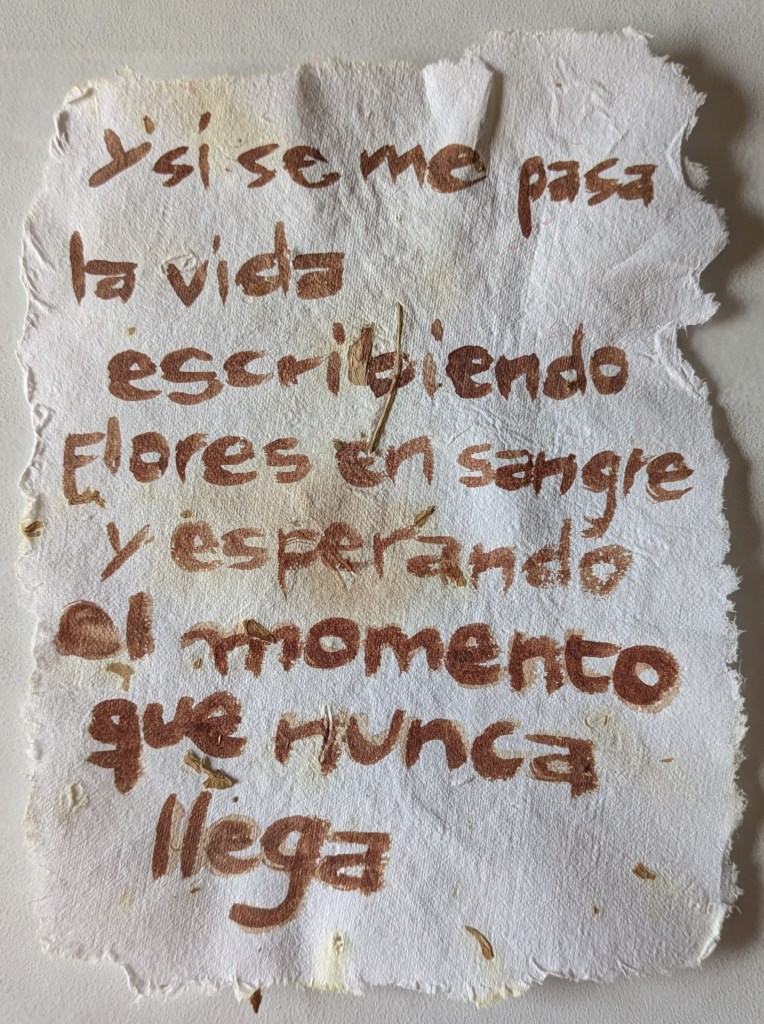 Y si se me pasa
la vida
escribiendo
Flores en sangre
y esperando
el momento
que nunca
llega